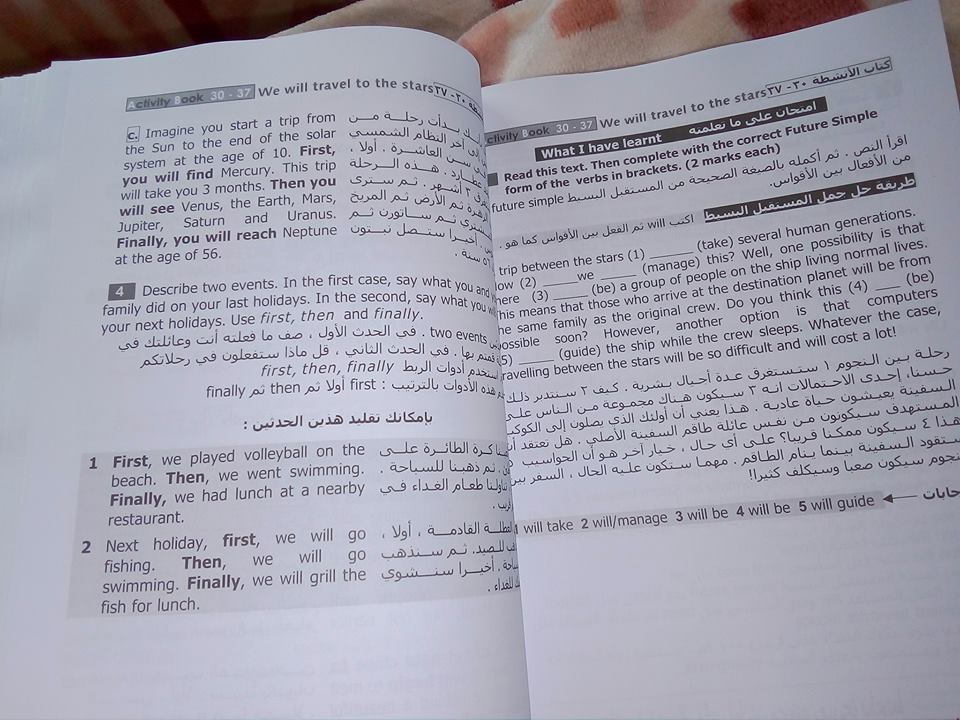 Activity Book 30 - 37 We will travel to the stars
c. Imagine you start a trip from
the Sun to the end of the solar
system at the age of 10. First,
you will find Mercury. This trip
will take you 3 months. Then you
will see Venus, the Earth, Mars,
Jupiter, Saturn and Uranus.
Finally, you will reach Neptune
at the age of 56.
بدأت رحلة من
آخر النظام الشمسي
سن العاشرة . أولا ،
عطارد . هذه الرحلة
٣ أشهر . ثم سترى
الزهرة ثم الأرض ثم المريخ
ثم ساتورن ثم
أخيرا ستصل نبتون
٥٦ سنة .
4 Describe two events. In the first case, say what you and
family did on your last holidays. In the second, say what you
your next holidays. Use first, then and finally.
two events . في الحدث الأول ، صف ما فعلته أنت وعائلتك في
قمتم بها . في الحدث الثاني ، قل ماذا ستفعلون في رحلاتكم
استخدم أدوات الربط first, then, finally
هذه الأدوات بالترتيب : first أولا ثم then ثم finally
بإمكانك تقليد هذين الحدثين :
1 First, we played volleyball on the
beach. Then, we went swimming.
Finally, we had lunch at a nearby
restaurant.
كرة الطائرة على
ثم ذهبنا للسباحة .
تناولنا طعام الغداء في
2 Next holiday, first, we will go
fishing. Then, we will go
swimming. Finally, we will grill the
fish for lunch.
العطلة القادمة ، أولا ،
للصيد. ثم سنذهب
أخيرا سنشوي
للغداء .
Activity Book 30 - 37 We will travel to the stars كتاب الأنشطة ٣٠ - ٣٧
What I have learnt امتحان على ما تعلمته
Read this text. Then complete with the correct Future Simple
form of the verbs in brackets. (2 marks each)
اقرأ النص . ثم أكمله بالصيغة الصحيحة من المستقبل البسيط future simple
من الأفعال بين الأقواس.
طريقة حل جمل المستقبل البسيط اكتب will ثم الفعل بين الأقواس كما هو .
trip between the stars (1) ______ (take) several human generations.
(2) ______ we ______ (manage) this? Well, one possibility is that
(3) ______ (be) a group of people on the ship living normal lives.
this means that those who arrive at the destination planet will be from
the same family as the original crew. Do you think this (4) ___ (be)
possible soon? However, another option is that computers
(5) _____ (guide) the ship while the crew sleeps. Whatever the case,
travelling between the stars will be so difficult and will cost a lot!
رحلة بين النجوم ١ ستستغرق عدة أجيال بشرية . كيف ٢ سنتدبر ذلك
حسنا، إحدى الاحتمالات انه ٣ سيكون هناك مجموعة من الناس على
السفينة يعيشون حياة عادية . هذا يعني أن أولئك الذي يصلون إلى الكوكب
المستهدف سيكونون من نفس عائلة طاقم السفينة الأصلي . هل تعتقد أن
هذا ٤ سيكون ممكنا قريبا؟ على أي حال ، خيار آخر هو أن الحواسيب
ستقود السفينة بينما ينام الطاقم . مهما ستكون عليه الحال ، السفر بين
نجوم سيكون صعبا وسيكلف كثيرا!
1 will take 2 will/manage 3 will be 4 will be 5 will guide